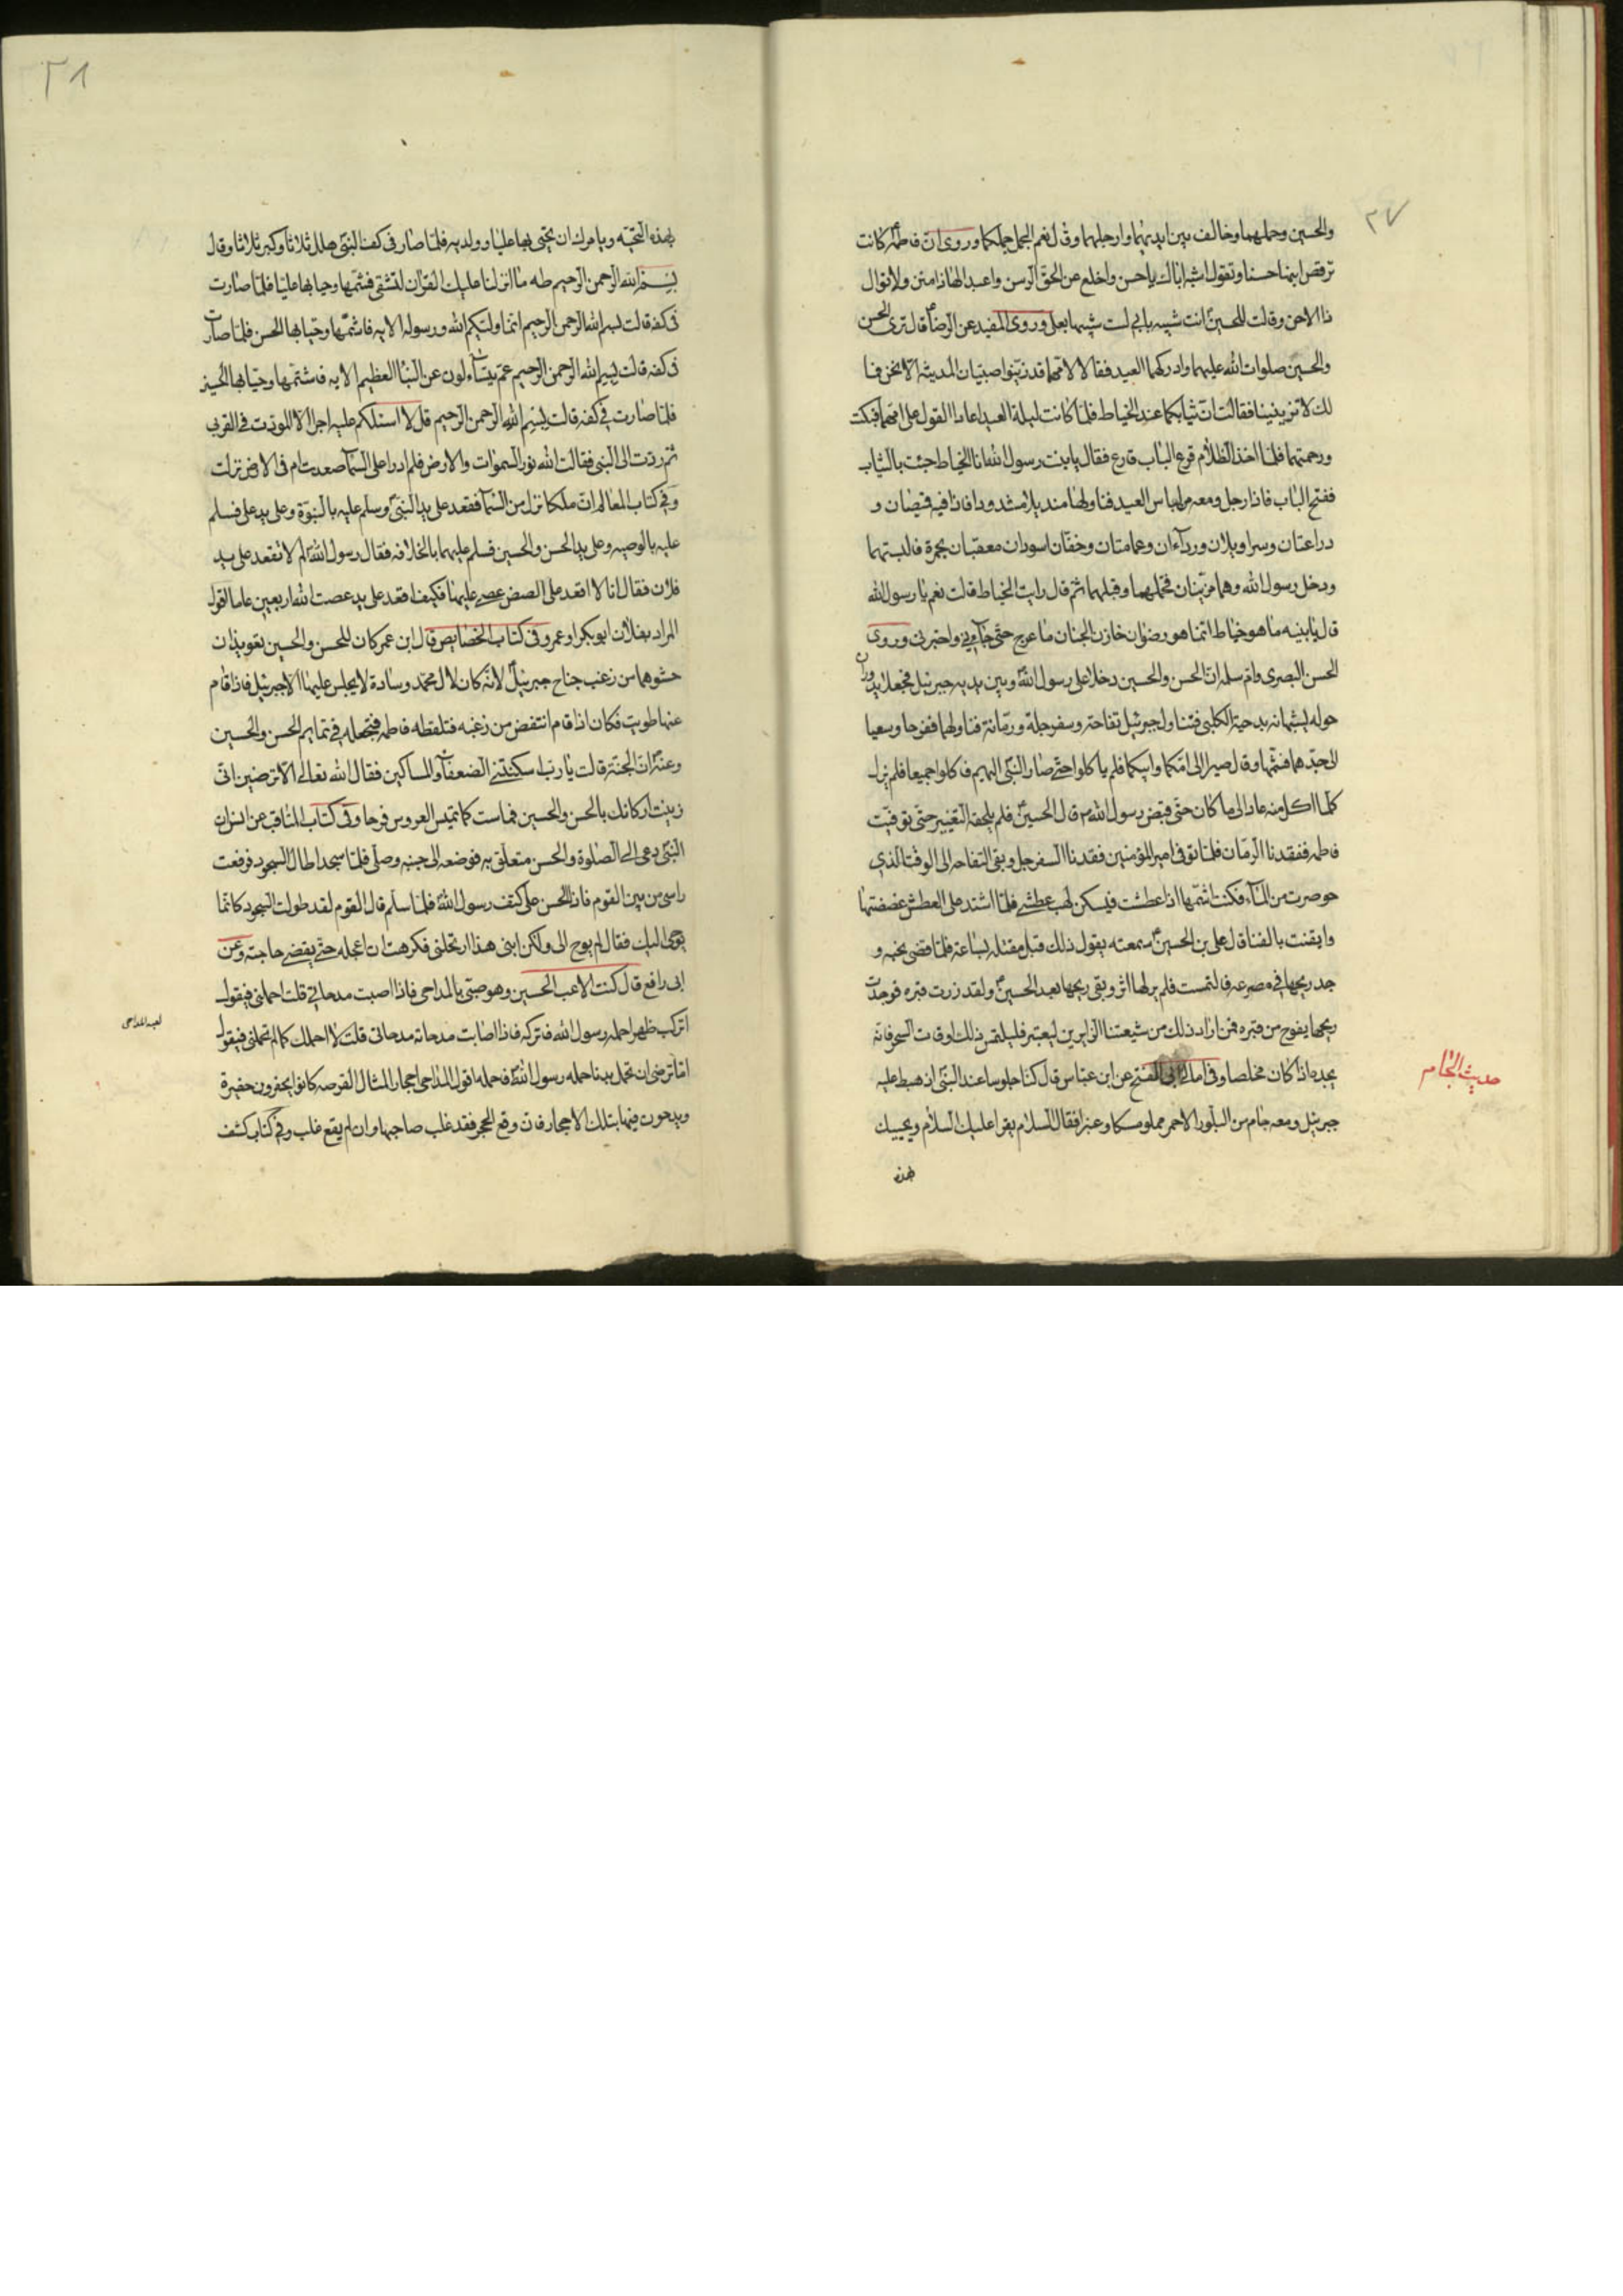 ٢٧
والحسين وحملهما وخالف بين ايديهما وارجلهما وقال نعم الجمل جملكما وروى ان فاطمة كانت
ترقص ابنها حسنا وتقول اشبه اباك يا حسن واخلع عن الحق الرسن واعبد الها ذا منن ولا توال
ذا الاحن وقالت للحسين انت شبيه بابي لست شبيها بعلى وروى المفيد عن الرضا قال عرى الحسن
والحسين صلوات الله عليهما وادركهما العيد فقالا لامهما قد زينوا صبيان المدينة الا نحن فما
لك لا تزينينا فقالت ان ثيابكما عند الخياط فلما كانت ليلة العيد اعادا القول على امهما فبكت
ورحمتهما فلما اخذ الظلام قرع الباب قارع فقال يا بنت رسول الله انا الخياط جئت بالثياب
ففتح الباب فاذا رجل ومعه من لباس العيد فناولها منديلا مشدودا فاذا فيه قميصان و
دراعتان وسراويلان ورداءان وعمامتان وخفان اسودان معقبان بحمرة فالبستهما
ودخل رسول الله وهما مزينان فحملهما وقبلهما ثم قال رايت الخياط قالت نعم يا رسول الله
قال يا بنيه ما هو خياط انما هو رضوان خازن الجنان ما عرج حتى جاءنى واخبرنى وروى
الحسن البصرى وام سلمه ان الحسن والحسين دخلا على رسول الله وبين يديه جبرئيل فجعلا يدوران
حوله يشبهانه بدحية الكلبى فتناول جبرئيل تفاحة وسفرجلة ورمانة فناولهما ففرحا وسعيا
الى جدهما فشمها وقال صيرا الى امكما وابيكما فلم ياكلوا حتى صار النبى اليهم فاكلوا جميعا فلم يزل
كلما اكل منه عاد الى ما كان حتى قبض رسول الله قال الحسين فلم يلحقه التغيير حتى توفيت
فاطمه ففقدنا الرمان فلما توفى امير المؤمنين فقدنا السفرجل وبقى التفاحه الى الوقت الذى
حوصرت من الماء فكنت اشمها اذا عطشت فيسكن لهب عطشى فلما اشتد على العطش عضضتها
وايقنت بالفنا قال على بن الحسين سمعته يقول ذلك قبل مقتله بساعة فلما قضى نحبه و
جد ريحها فى مصرعه فالتمست فلم ير لها اثر وبقى ريحها بعد الحسين ولقد زرت قبره فوجدت
ريحها يفوح من قبره فمن اراد ذلك من شيعتنا الزايرين ليعتبر فليلتمس ذلك اوقات السحر فانه
يجده اذا كان مخلصا وفى امالى ابى الفتح عن ابن عباس قال كنا جلوسا عند النبى اذ هبط عليه
جبرئيل ومعه جام من البلور الاحمر مملو مسكا وعنبرا فقال السلام يقرا عليك السلام ويحييك
بهذه
حديث الجام
٢٨
بهذه التحيه ويامرك ان تحيى بها عليا وولديه فلما صار فى كف النبى هلل ثلاثا وكبر ثلاثا وقال
بسم الله الرحمن الرحيم طه ما انزلنا عليك القران لتشقى فشمها وحيا بها عليا فلما صارت
فى كفه قالت بسم الله الرحمن الرحيم انما وليكم الله ورسوله الايه فاشتمها وحيا بها الحسن فلما صارت
فى كفه قالت بسم الله الرحمن الرحيم عم يتساءلون عن النبا العظيم الايه فاشتمها وحيا بها الحسين
فلما صارت فى كفه قالت بسم الله الرحمن الرحيم قل لا اسئلكم عليه اجرا الا المودت فى القربى
ثم ردت الى النبى فقالت الله نور السموات والارض فلم ادرا على السما صعدت ام فى الارض نزلت
وفى كتاب المعالم ان ملكا نزل من السما فقعد على يد النبى وسلم عليه بالنبوة وعلى يد على فسلم
عليه بالوصيه وعلى يد الحسن والحسين فسلم عليهما بالخلافه فقال رسول الله لم لا تقعد على يد
فلان فقال انا لا اقعد على ارض عصى عليها فكيف اقعد على يد عصت الله اربعين عاما اقول
المراد بفلان ابو بكر او عمر وفى كتاب الخصايص قال ابن عمر كان للحسن والحسين تعويذان
حشوهما من زغب جناح جبرئيل لانه كان لال محمد وسادة لا يجلس عليها الا جبرئيل فاذا قام
عنها طويت فكان اذا قام انتفض من زغبه فتلقطه فاطمه فتجعله فى تمايم الحسن والحسين
وعنه ان الجنة قالت يا رب اسكنتنى الضعفاء والمساكين فقال الله تعالى الا ترضين انى
زينت اركانك بالحسن والحسين فماست كما تميس العروس فرحا وفى كتاب المناقب عن ان
النبى دعى الى الصلوة والحسن متعلق به فوضعه الى جنبه وصلى فلما سجد اطال السجود فرفعت
راسى من بين القوم فاذا الحسن على كتف رسول الله فلما سلم قال القوم لقد طولت السجود كانما
يوحى اليك فقال لم يوح الى ولكن ابنى هذا ارتحلنى فكرهت ان اعجله حتى يقضى حاجته وعن
ابى رافع قال كنت الاعب الحسين وهو صبى بالمداحى فاذا اصبت مدحاته قلت احملنى فيقول
اتركب ظهرا حمله رسول الله فاتركه فاذا اصابت مدحاته مدحاتى قلت لا احملك كما لم تحملنى فيقول
اما ترضى ان تحمل بدنا حمله رسول الله فاحمله اقول المداحى احجار امثال القرصه كانوا يحفرون حفيرة
ويدحون فيها بتلك الاحجار فان وقع الحجر فقد غلب صاحبها وان لم يقع غلب وفى كتاب كشف
لعب المداحى